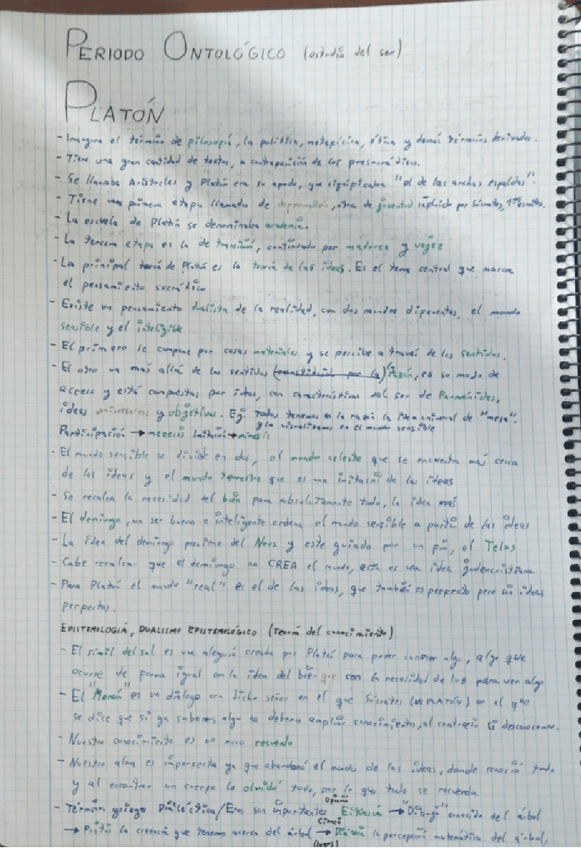 PERIODO ONTOLÓGICO (estudio del ser)
PLATÓN
- Inaugura el término de filosofía, la política, metafísica, ética y demás términos derivados.
- Tiene una gran cantidad de textos, a contraposición de los presocráticos.
- Se llamaba Aristocles y Platón era su apodo, que significaba "el de las anchas espaldas".
- Tiene una primera etapa llamada de , otra de juventud influido por Sócrates,
- La escuela de Platón se denominaba academia.
- La tercera etapa es la de transición, continuado por madurez y vejez
- La principal teoría de Platón es la teoría de las ideas. Es el tema central que marca
el pensamiento socrático
- Existe un pensamiento dualista de la realidad, con dos mundos diferentes, el mundo
sensible y el inteligible
- El primero se compone por cosas materiales y se percibe a través de los sentidos.
- El otro un más allá de los sentidos (constituido por la) razón, es su modo de
acceso y está compuestas por ideas, con características del ser de Parménides,
ideas universales y objetivas. Ej: Todos tenemos en la razón la idea universal de "mesa".
y la visualizamos en el mundo sensible
Participación → mezcla Imitación → mímesis
- El mundo sensible se divide en dos, el mundo celeste que se encuentra más cerca
de las ideas y el mundo terrestre que es una imitación de las ideas
- Se recalca la necesidad del bien para absolutamente todo, la idea más
- El demiurgo, un ser bueno e inteligente ordena el mundo sensible a partir de las ideas
- La idea del demiurgo proviene del Nous y este guiado por un fin, el Telos
- Cabe recalcar que el demiurgo no CREA el mundo, esta es una idea judeocristiana
- Para Platón el mundo "real" es el de las ideas, que también es perfecto pero sin ideas
perfectas.
EPISTEMOLOGIA, DUALISMO EPISTEMOLÓGICO (Teoría del conocimiento)
- El símil del sol es una alegoría creada por Platón para poder conocer algo, algo que
ocurre de forma igual con la idea del bien que con la necesidad de luz para ver algo
- El "Menón" es un diálogo con dicho señor en el que Sócrates (NO PLATÓN) en el que
se dice que si ya sabemos algo no debería ampliar conocimiento, al contrario lo desconocemos.
- Nuestro conocimiento es un mero recuerdo
- Nuestro alma es imperfecta ya que abandonó el mundo de las ideas, donde conoció todo
y al encontrar un cuerpo lo olvidó todo, por lo que todo se recuerda
Opinión
- Término griego Dialéctica/Eros son importantes Eikasia → Dibujo conocido del árbol
Ciencia
→ Pistis la creencia que tenemos acerca del árbol → Dianoia la percepción matemática del árbol,